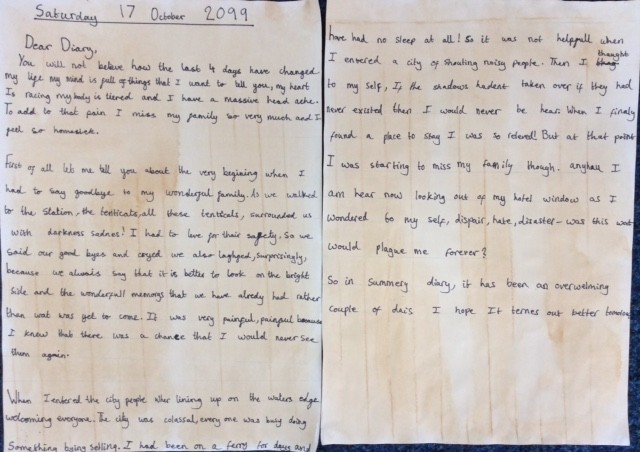 Saturday 17 October 2099
Dear Diary,
You will not believe how the last 4 days have changed
my life my mind is full of things that I want to tell you, my heart
Is racing my body is tiered and I have a massive head ache.
To add to that pain I miss my family so very much and I
feel so homesick.
First of all let me tell you about the very begining when I
had to say goodbye to my wonderful family. As we walked
to the Station, the tenticals, all these tenticals, surrounded us
with darkness sadnes! I had to leve for their safety, So we
said our good byes and cryed we also laghped, surprisingly,
because we alwais say that it is better to look on the bright
side and the wonderfull memorys that we have alredy had rather
than wat was yet to come. It was very painful, painful because
I knew that there was a chance that I would never see
them again.
When I entered the city people wher lining up on the waters edge
welcoming everyone. The city was colossal, every one was busy doing
Something bying selling. I had been on a ferry for days and
have had no sleep at all! So it was not helpfull when
I entered a city of shouting noisy people. Then I thought
to my self, If the shadows hadent taken over if they had
never existed then I would never be hear. When I finaly
found a place to stay I was so relered! But at that point
I was starting to miss my family though. anyhau I
am hear now looking out of my hotel window as I
wondered to my self, dispair, hate, disaster - was this wat
would plague me forever?
So in Summery diary, it has been an overwelming
couple of dais I hope It ternes out better tomorow